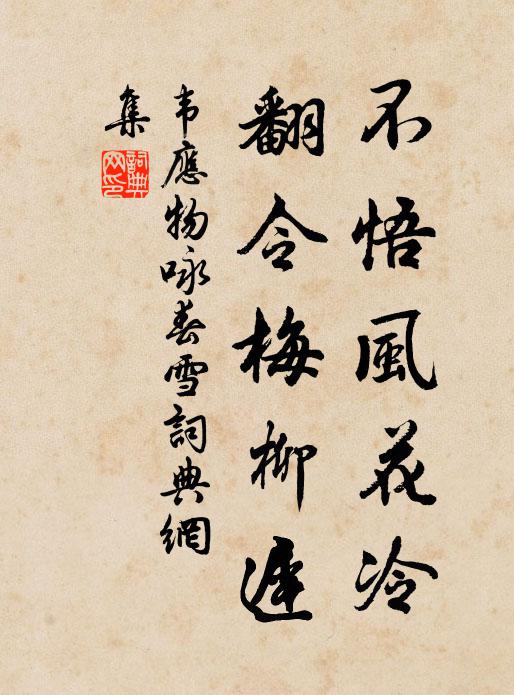 不悟風花冷
翻令梅柳遲
韦應物咏春雪詞典網
集
詞典
网印